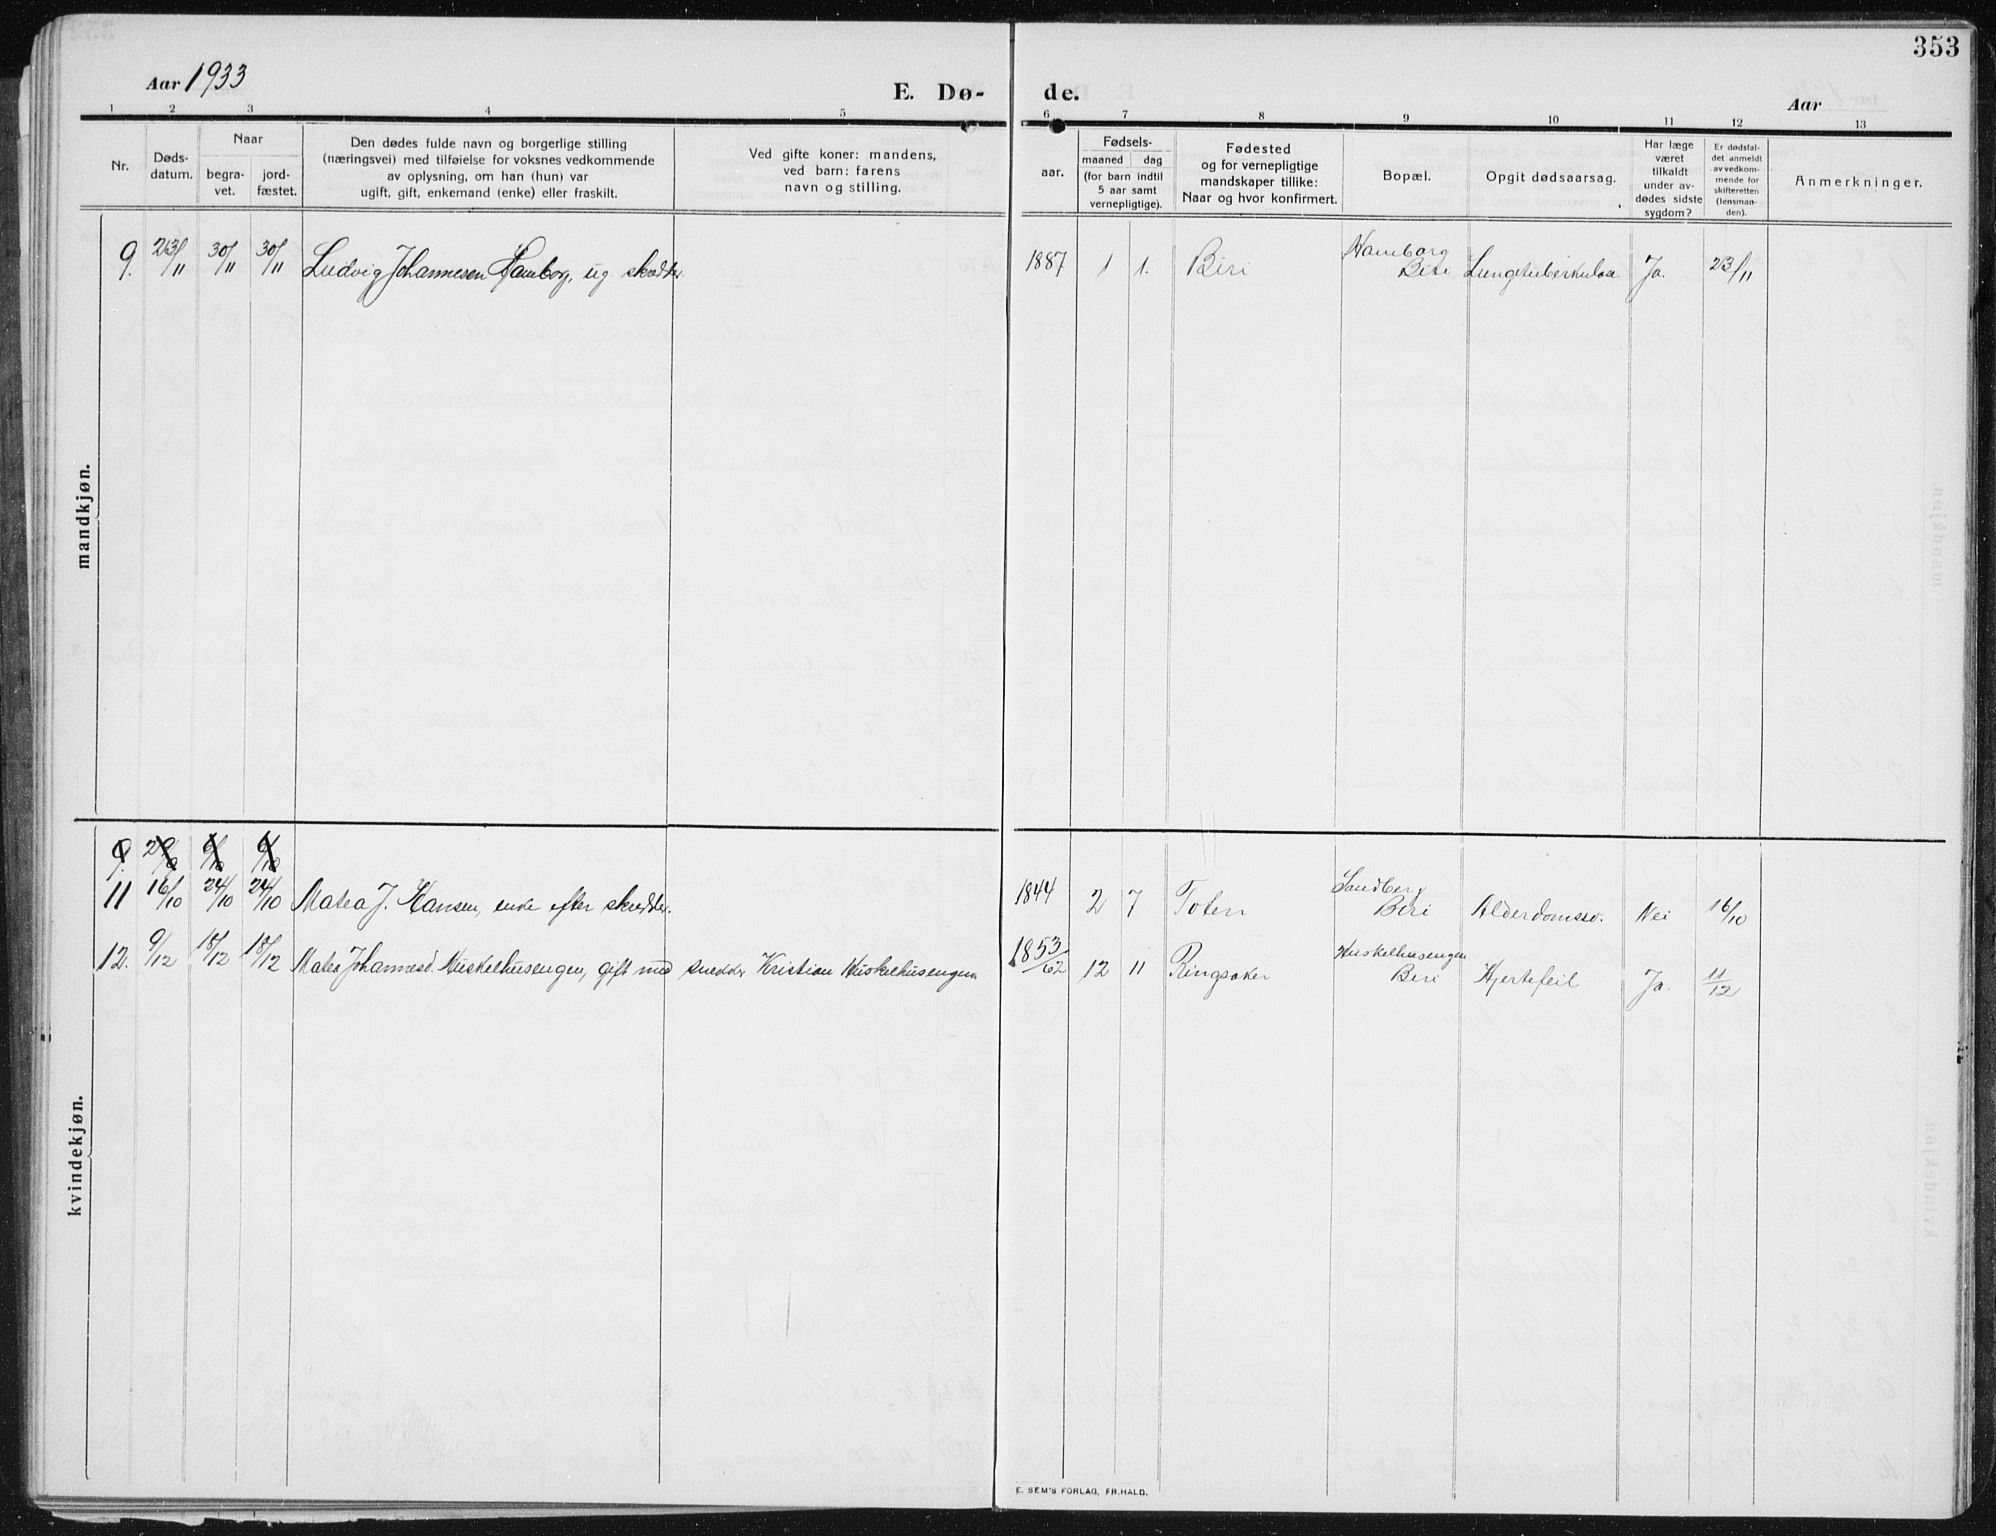 353
Aar 1933
E. Dø-
de.
Aar
1 2 3 4 5 6 7 8 9 10 11 12 13
Nr.
Døds-
datum.
Naar
begra-
vet.
jord-
fæstet.
Den dødes fulde navn og borgerlige stilling
(næringsvei) med tilføielse for voksnes vedkommende
av oplysning, om han (hun) var
ugift, gift, enkemand (enke) eller fraskilt.
Ved gifte koner: mandens,
ved barn: farens
navn og stilling.
aar.
Fødsels-
maaned dag
(for barn indtil
5 aar samt
vernepligtige).
Fødested
og for vernepligtige
mandskaper tillike:
Naar og hvor konfirmert.
Bopæl.
Opgit dødsaarsag.
Har læge
været
tilkaldt
under av-
dødes sidste
sygdom?
Er dødsfal-
det anmeldt
av vedkom-
mende for
skifteretten
(lensman-
den).
Anmerkninger.
mandkjøn.
9. 23/11 30/11 30/11 Ludvig Johannesen Hamborg, ug. skrædder 1887 1 1. Biri Hamborg
Biri Lungetuberkulose Ja. 23/11
kvindekjøn.
9.
11 16/10 24/10 24/10 Matea J. Hansen, enke efter skrædder. 1844 2 7 Toten Sandberg
Biri Alderdomssv. Nei 16/10
12. 9/12 18/12 18/12 Matea Johannesd. Huskelhusengen, gift med snedder Kristian Huskelhusengen 1853/62 12 11 Ringsaker Huskelhusengen
Biri Hjertefeil Ja. 11/12
E. SEM'S FORLAG, FR.HALD.